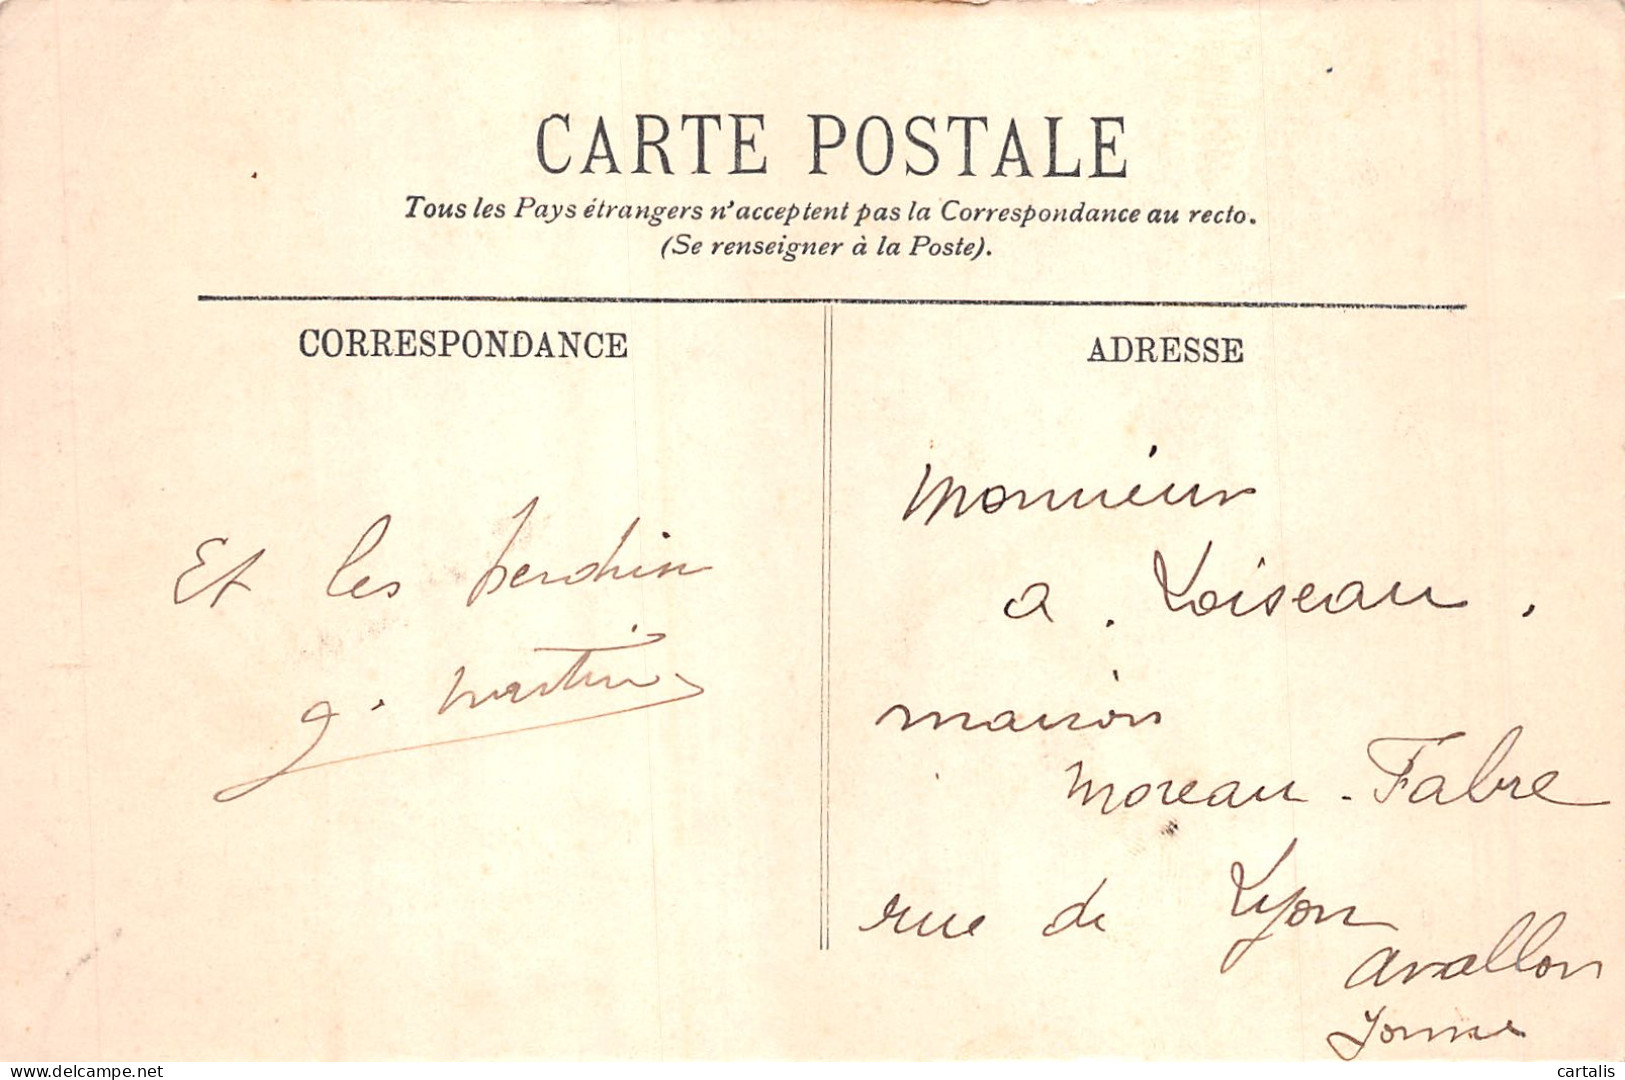 CARTE POSTALE
Tous les Pays étrangers n'acceptent pas la Correspondance au recto.
(Se renseigner à la Poste).
CORRESPONDANCE
Et les
g. Martin
ADRESSE
Monsieur
a. Loiseau.
maison
Moreau-Fabre
rue de Lyon
Avallon
Yonne
www.delcampe.net
cartalis